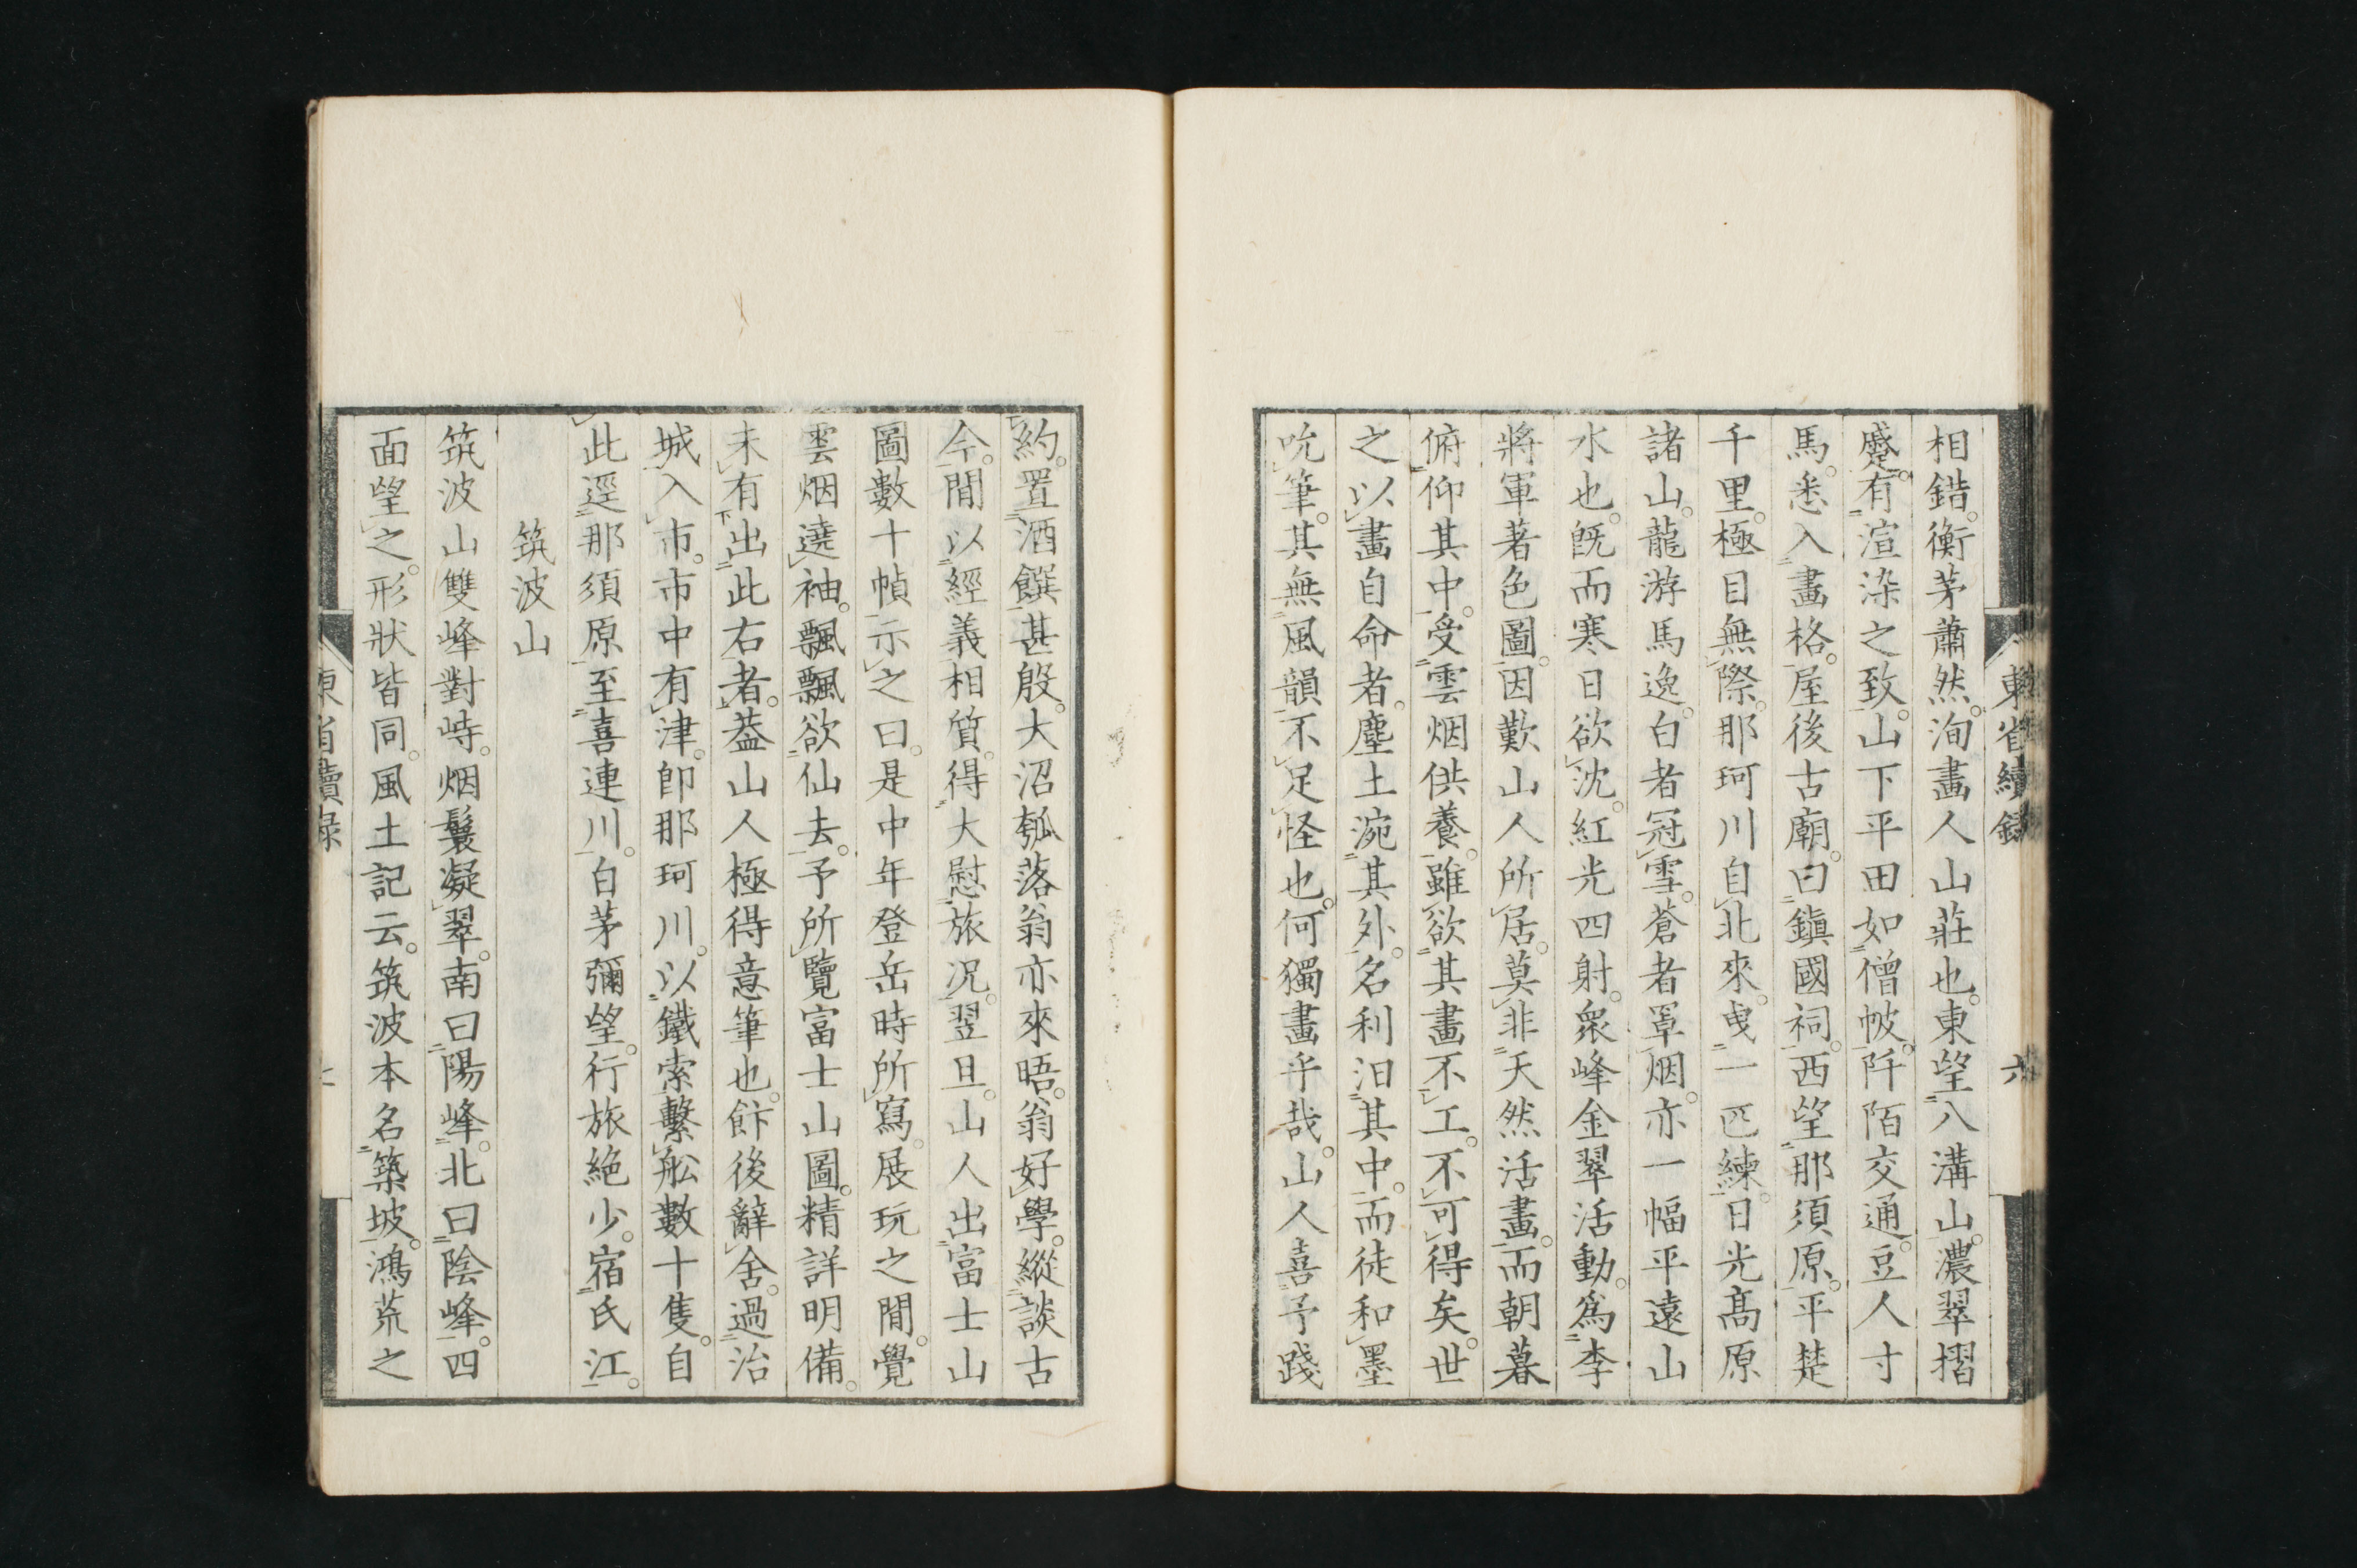 相錯。衡茅蕭然。洵畫人山莊也。東望八溝山。濃翠摺
蹙。有渲染之致。山下平田如僧帔。阡陌交通。豆人寸
馬。悉入畫格。屋後古廟。曰鎭國祠。西望那須原。平楚
千里。極目無際。那珂川自北來。曳一匹練。日光高原
諸山。龍游馬逸。白者冠雪。蒼者罩烟。亦一幅平遠山
水也。旣而寒日欲沈。紅光四射。衆峰金翠活動。爲李
將軍著色圖。因歎山人所居。莫非天然活畫。而朝暮
俯仰其中。受雲烟供養。雖欲其畫不工。不可得矣。世
之以畫自命者。塵土涴其外。名利汨其中。而徒和墨
吮筆。其無風韻不足怪也。何獨畫乎哉。山人喜予踐
東省續錄 六
約。置酒饌甚殷。大沼瓠落翁亦來晤。翁好學。縱談古
今。間以經義相質。得大慰旅況。翌旦。山人出富士山
圖數十幀示之曰。是中年登岳時所寫。展玩之間。覺
雲烟遶袖。飄飄欲仙去。予所覽富士山圖。精詳明備。
未有出此右者。葢山人極得意筆也。飰後辭舍。過治
城入市。市中有津。卽那珂川。以鐵索繫舩數十隻。自
此逕那須原至喜連川。白茅彌望。行旅絶少。宿氏江。
筑波山
筑波山雙峰對峙。烟鬟凝翠。南曰陽峰。北曰陰峰。四
面望之。形狀皆同。風土記云。筑波本名築坡。鴻荒之
東省續錄